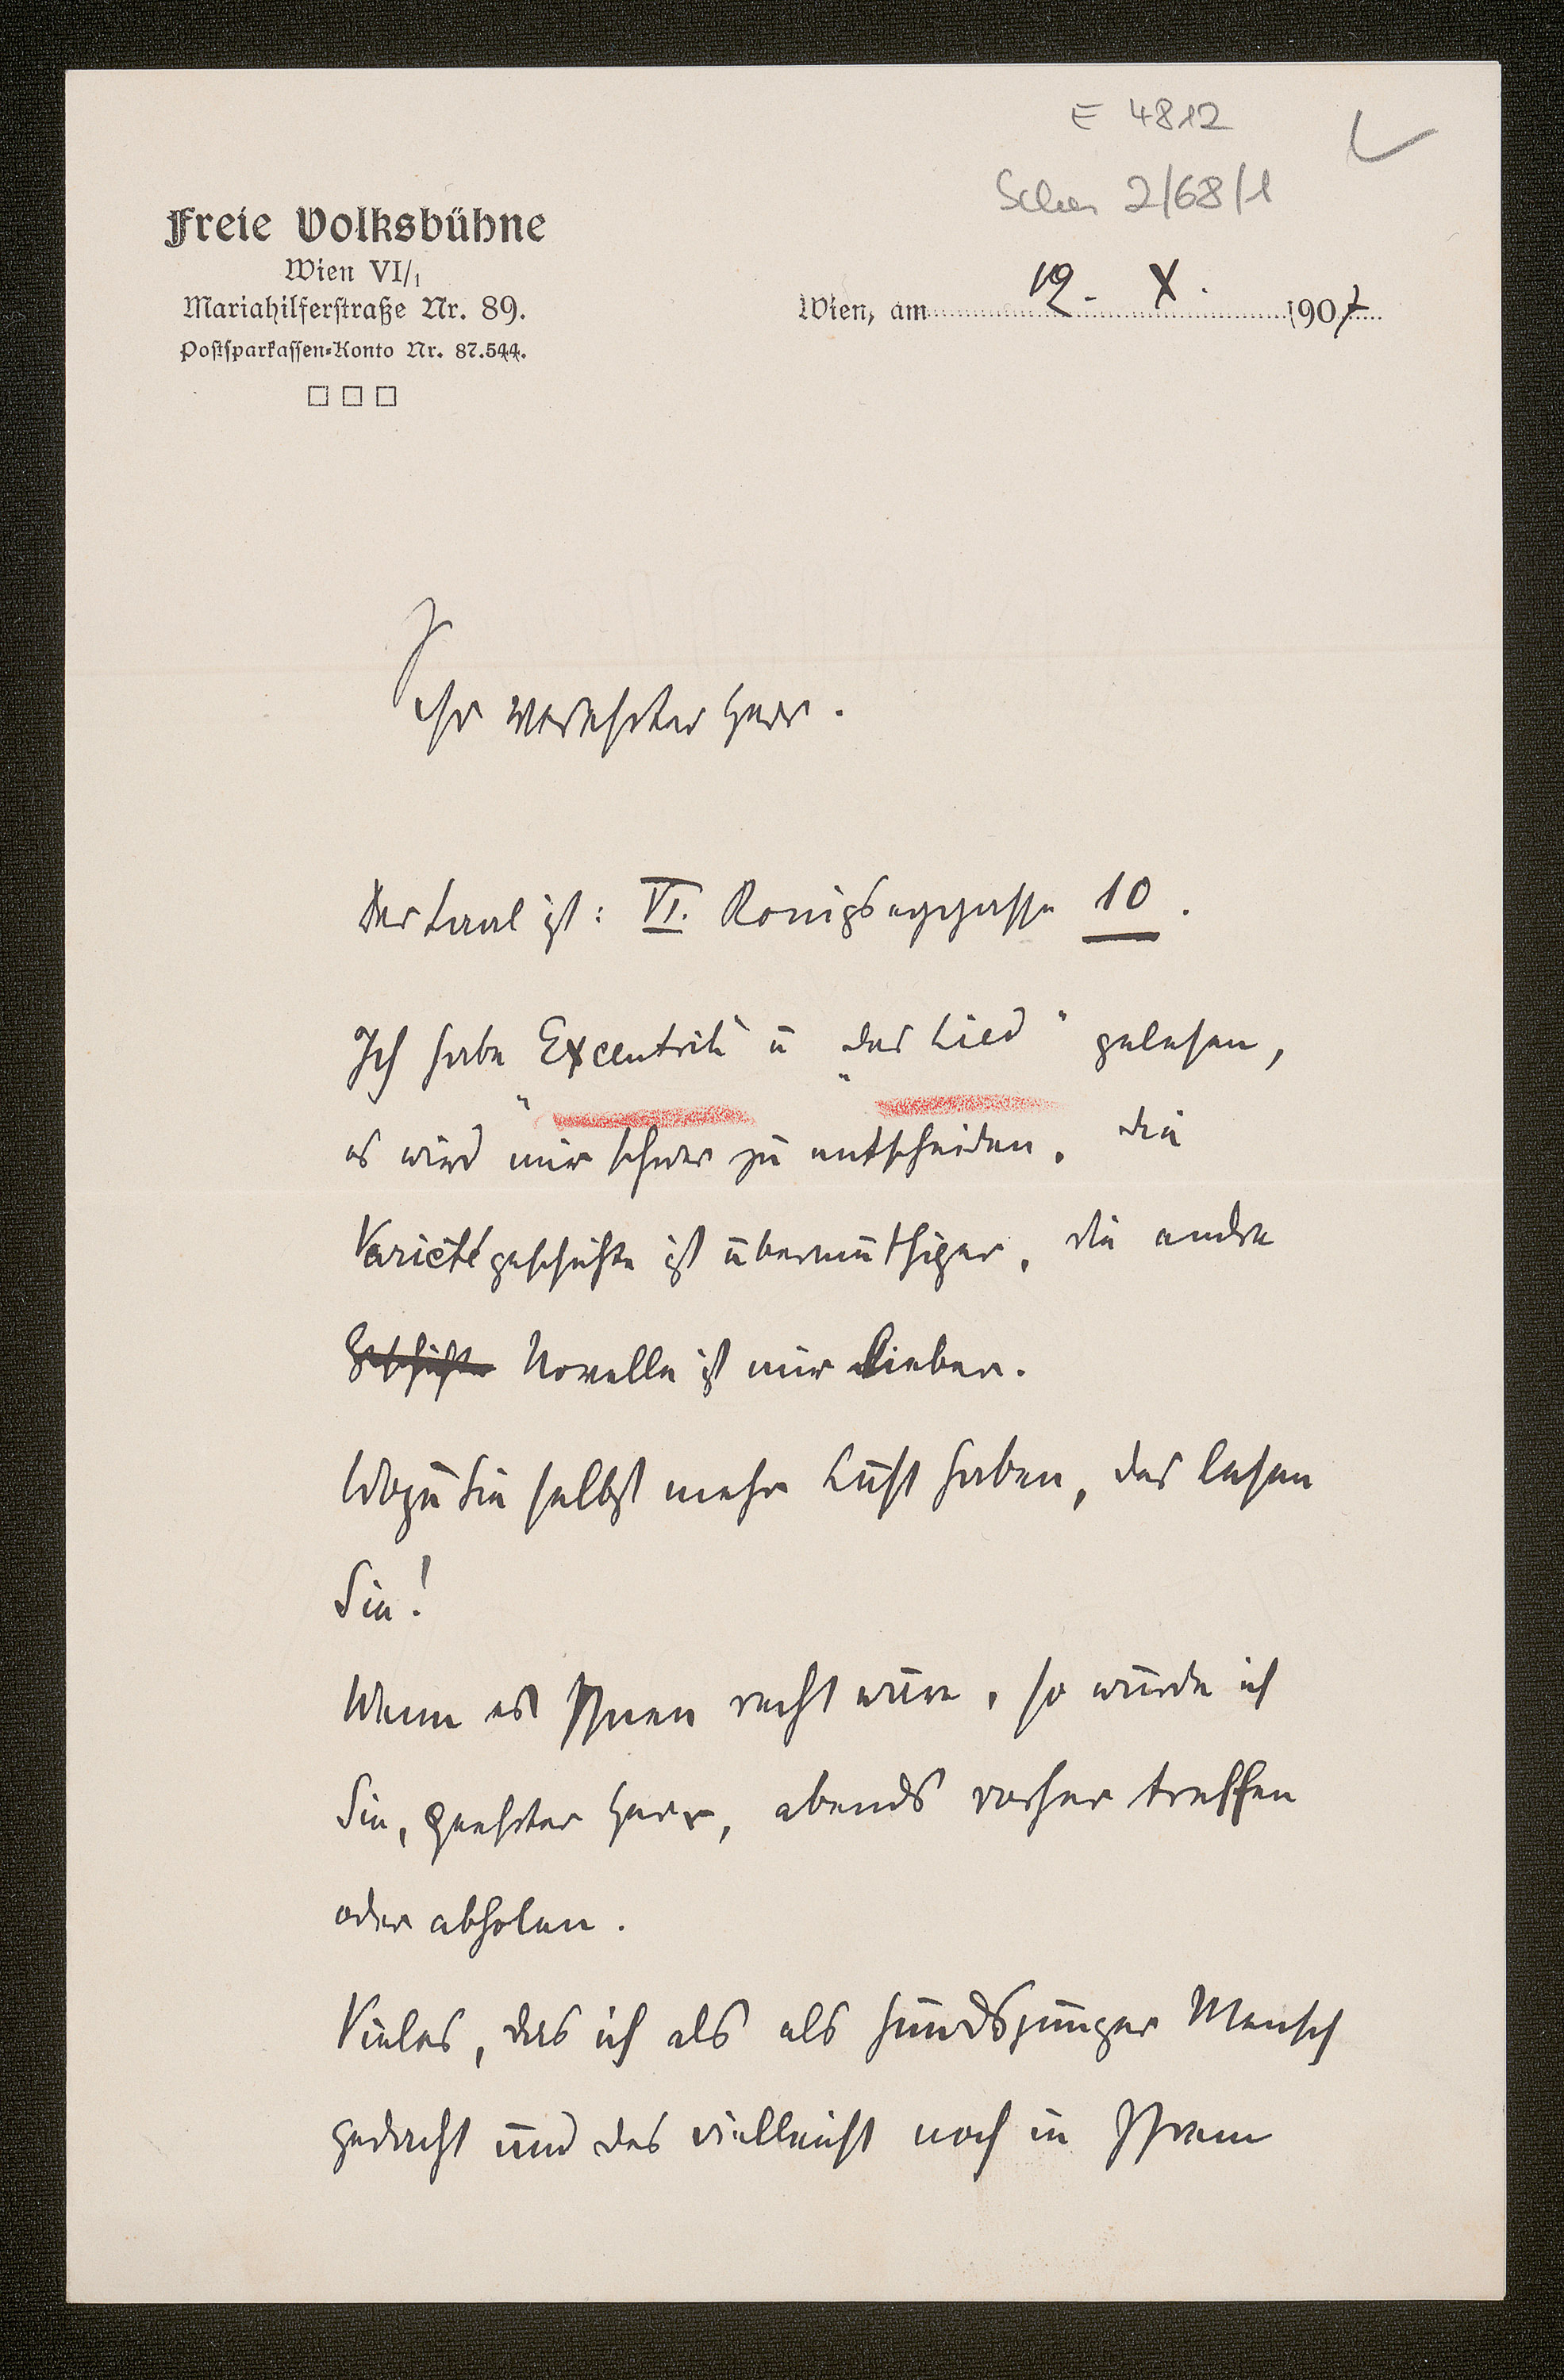 E 4812
2/68/1
Freie Volksbühne
Wien VI/1
Mariahilferstraße Nr. 89.
Postsparkassen-Konto Nr. 87.544.
Wien, am 12. X. 1907
Sehr verehrter Herr.
Der Saal ist: VI. Königseggasse 10.
Ich habe „Excentrik“ u „das Lied“ gelesen,
es wird mir schwer zu entscheiden, die
Varietégeschichte ist übermüthiger, die andre
Geschichte Novelle ist mir lieber.
Wozu Sie selbst mehr Lust haben, das lesen
Sie!
Wenn es Ihnen recht wäre, so würde ich
Sie, geehrter Herr, abends vorher treffen
oder abholen.
Vieles, das ich als als hundsjunger Mensch
gedacht und das vielleicht noch in Ihrem